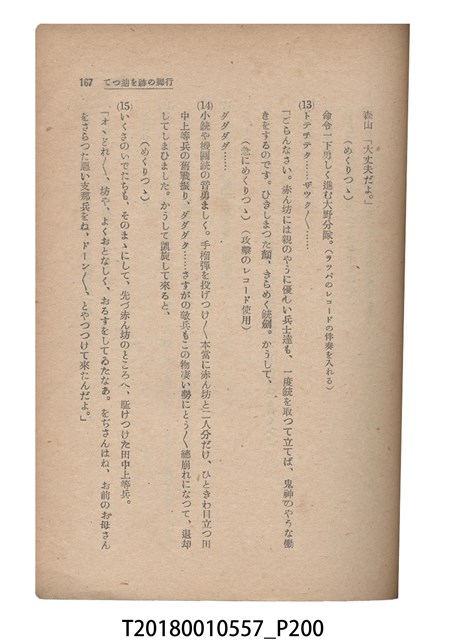 行脚の跡を追つて 167
森山「大丈夫だよ。」
(めくりつゝ)
命令一下勇しく進む大野分隊。(ラツパのレコードの伴奏を入れる)
(13)
トテサテタ……ザツク〱……
「ごらんなさい。赤ん坊には親のやうに優しい兵士達も、一度銃を取つて立てば、鬼神のやうな働
きをするのです。ひきしまつた顔、きらめく銃劍。かうして、
(急にめくりつゝ)(攻撃のレコード使用)
ダダダダ……
(14)
小銃や機關銃の音勇ましく。手榴彈を投げつけ〱本當に赤ん坊と二人分だけ、ひときわ目立つ田
中上等兵の奮戰振り、ダダダタ……さすがの敵兵もこの物凄い勢にとう〱總崩れになつて、退却
してしまひました。かうして凱旋して來ると、
(めくりつゝ)
(15)
いくさのいでたちも、そのまゝにして、先づ赤ん坊のところへ、駈けつけた田中上等兵。
「オヽどれ〱、坊や、よくおとなしく、おるすをしてゐたなあ。をぢさんはね、お前のお母さん
をさらつた惡い支那兵をね。ドーン〱、とやつつけて來たんだよ。」
T20180010557_P200